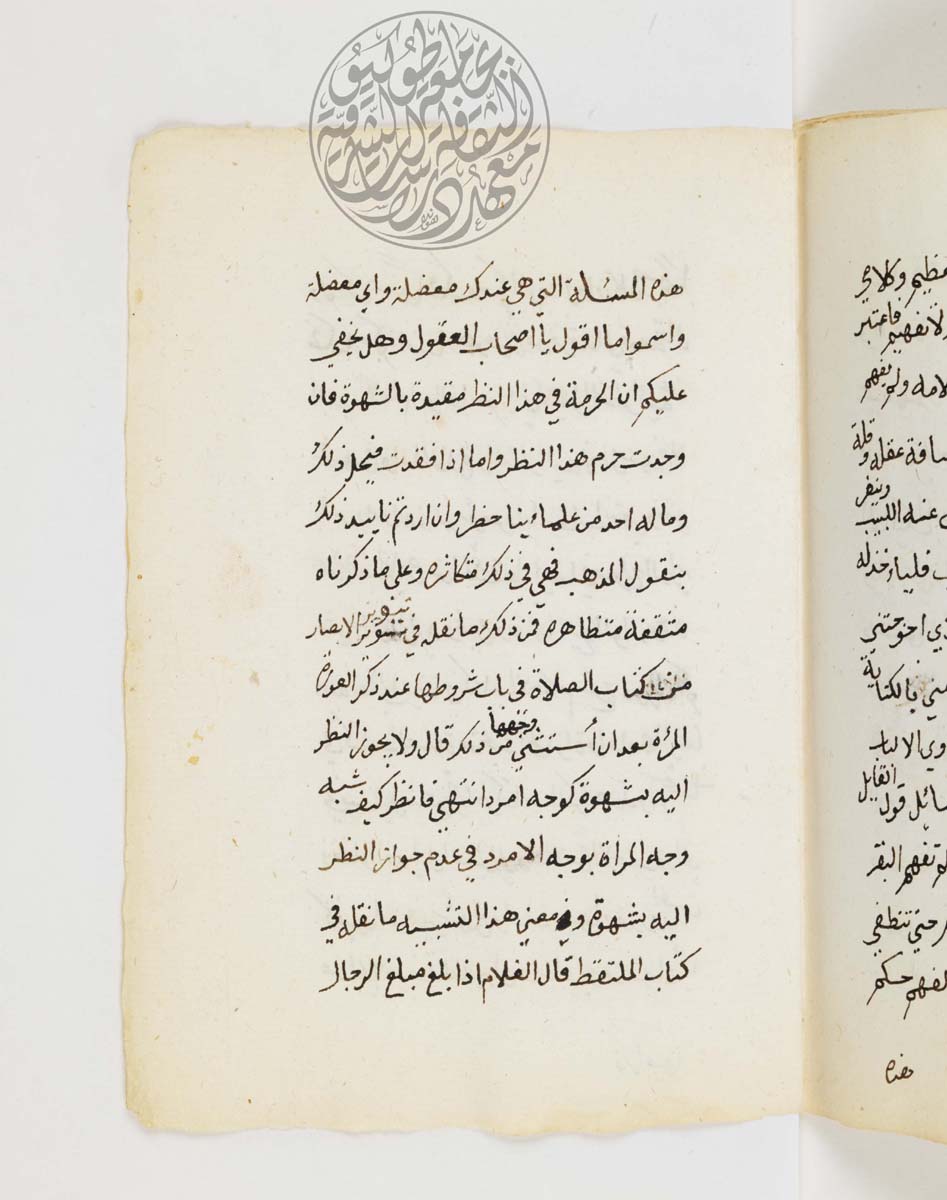 هذه المسئلة التي هي عندك معضلة واي معضلة
واسموا ما اقول يا اصحاب العقول وهل يخفي
عليكم ان الحرمة في هذا النظر مقيدة بالشهوة فان
وجدت حرم هذا النظر واما اذا فقدت فيحل ذلك
وما له احد من علماءينا حظر وان اردتم تاييد ذلك
بنقول المذهب فهي في ذلك متكاثره وعلى ما ذكرناه
متفقة متظاهره فمن ذلك ما نقله في تنوير الابصار
تنوير
من كتاب الصلاة في باب شروطها عند ذكر العورة
المرٔة بعد ان أستثني وجهها من ذلك قال ولا يجوز النظر
اليه بشهوة كوجه امرد انتهي فانظر كيف شبه
وجه المراة بوجه الامرد في عدم جواز النظر
اليه بشهوة وفي معني هذا التشبيه ما نقله في
كتاب الملتقط قال الغلام اذا بلغ مبلغ الرجال
وكلامي
فاعتبر
ولم يفهم
عقله وقلة
وينفر
عنه اللبيب
احوجتني
بالكناية
الالباب
القايل
قول
تفهم البقر
حتي تنطفي
حكم
هذه
جامعة طوكيو
معهد دراسات الثقافة الشرقية